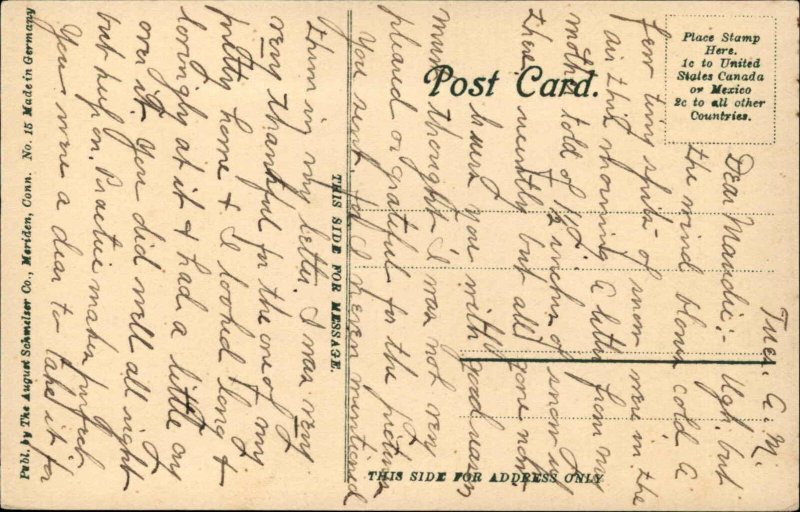 Post Card.
Place Stamp
Here.
1c to United
States Canada
or Mexico
2c to all other
Countries.
THIS SIDE FOR MESSAGE.
THIS SIDE FOR ADDRESS ONLY
Publ. by The August Schmelser Co., Meriden, Conn. No. 15 Made in Germany
Tues. A.M.
Dear Maudie:- Ugh but
the wind blows cold. A
few tiny spits of snow were in the
air this morning. A letter from my
mother told of 12 inches of snow up
there recently but all gone now.
Guess you with good reason
must thought I was not very
pleased or grateful for the pictures
you sent, for I never mentioned
them in my letter. I was very
very thankful for the one of my
pretty home & I looked long &
lovingly at it & had a little cry
over it. You did well all right
but keep on. Practice makes perfect.
You were a dear to take it for